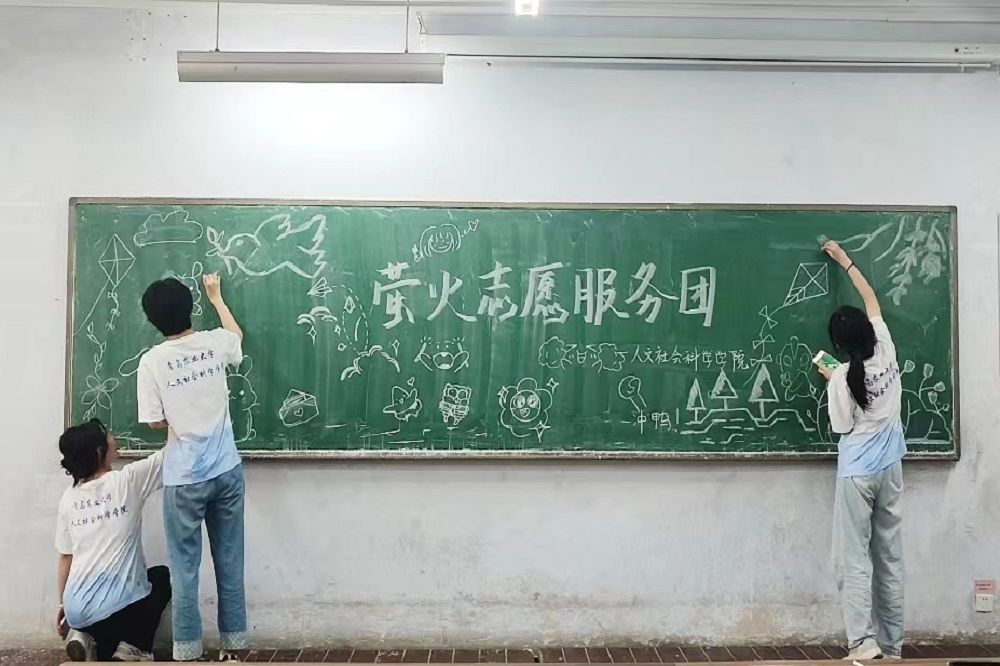 萤火志愿服务团
人文社会科学学院
冲鸭!
青岛农业大学
人文社会科学学院
青岛农业大学
人文社会科学学院